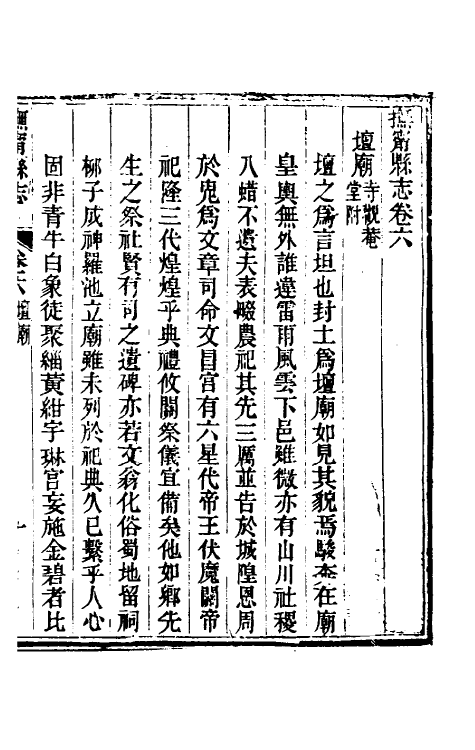 撫甯縣志卷六
壇廟寺觀菴堂附
壇之爲言坦也封土爲壇廟如見其貌焉駿奔在廟
皇輿無外誰違雷雨風雲下邑雖微亦有山川社稷
八蜡不遺夫表畷農祀其先三厲並告於城隍恩周
於鬼爲文章司命文昌宮有六星代帝王伏魔關帝
祀隆三代煌煌乎典禮攸關祭儀宜備矣他如鄉先
生之祭社賢有司之遺碑亦若文翁化俗蜀地留祠
柳子成神羅池立廟雖未列於祀典久已繫乎人心
固非青牛白象徒聚緇黃紺宇琳宮妄施金碧者比
撫甯縣志 卷六 壇廟